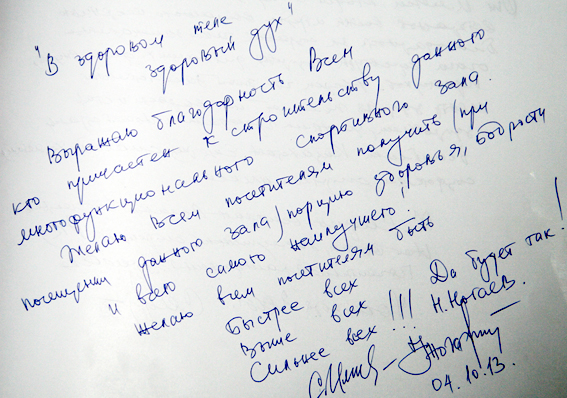 "В здоровом теле
здоровый дух"
Выражаю благодарность Всем
кто причастен к строительству данного
многофункционального спортивного зала.
Желаю всем посетителям получить (при
посещении данного зала) порцию здоровья, бодрости
и всего самого наилучшего!
Желаю всем посетителям быть
Быстрее всех
Выше всех
Сильнее всех!!!
Да будет так!
Н.Ногаев.
04.10.13.